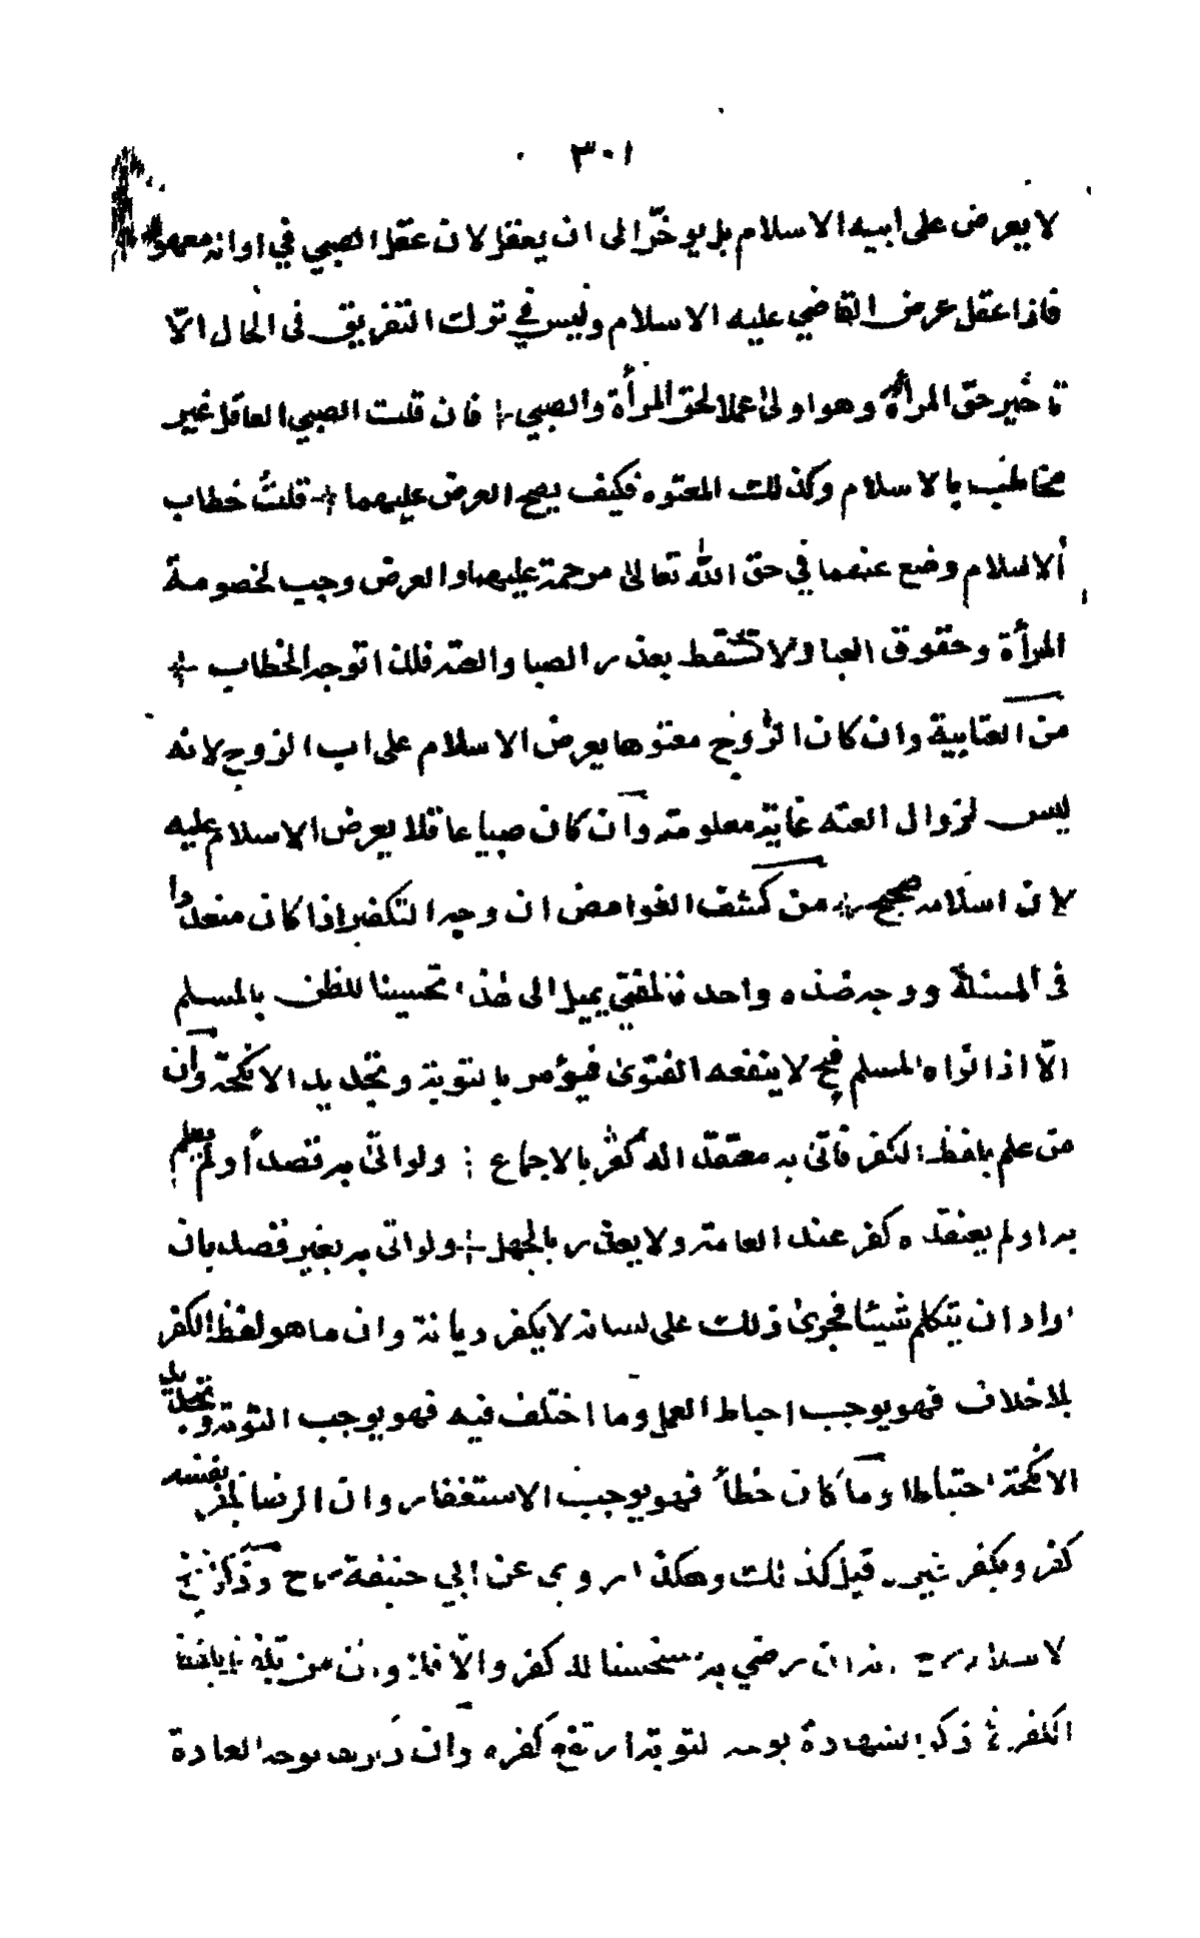 ٣٠١
لا يعرض على ابيه الاسلام بل يوخّر الى ان يعقل لان عقل الصبي في اوانه معهود
فاذا عقل عرض القاضي عليه الاسلام وليس في ترك التفريق فى الحال الّا
تأخير حق المرأة وهو اولى عملا لحق المرأة والصبي فان قلت الصبي العاقل غير
مخاطب بالاسلام وكذلك المعتوه فكيف يصح العرض عليهما قلتُ خطاب
الاسلام وضع عنهما في حق الله تعالىٰ مرحمة عليهما والعرض وجب لخصومة
المرأة وحقوق العباد لا تسقط بعذر الصبا والعته فلذا توجه الخطاب
من العتابية وان كان الزوج معتوها يعرض الاسلام على اب الزوج لانه
ليس لزوال العته غاية معلومة وان كان صبيا عاقلا يعرض الاسلام عليه
لان اسلامه صحيح من كشف الغوامض ان وجه التكفير اذا كان متعددا
فى المسئلة ووجه ضده واحد فالمفتي يميل الى هذا تحسينا للظن بالمسلم
الّا اذا اراه المسلم فح لا ينفعه الفتوىٰ فيؤمر بالتوبة وتجديد الانكحة وان
من علم بلفظ الكفر فاتى به معتقد اله كفر بالاجماع ولو اتىٰ به قصداً ولم يعلم
به او لم يعتقده كفر عند العامة ولا يعذر بالجهل ولو اتى به بغير قصد بان
اراد ان يتكلم شيئا فجرىٰ ذلك على لسانه لا يكفر ديانة وان ما هو لفظ الكفر
بلا خلاف فهو يوجب احباط العمل وما اختلف فيه فهو يوجب التوبة وتجديد
الانكحة احتياطا وما كان خطأ فهو يوجب الاستغفار وان الرضا لكفر نفسه
كفر وبكفر غيره قيل كذلك وهكذا روى عن ابي حنيفة رح وذكر شيخ
الاسلام رح انه ان رضي به مستحسنا له كفر والّا فلا وان من تلفظ بلفظ
الكفر ثم ذكر الشهادة بوجه التوبة ارتفع كفره وان ذكرها بوجه العادة